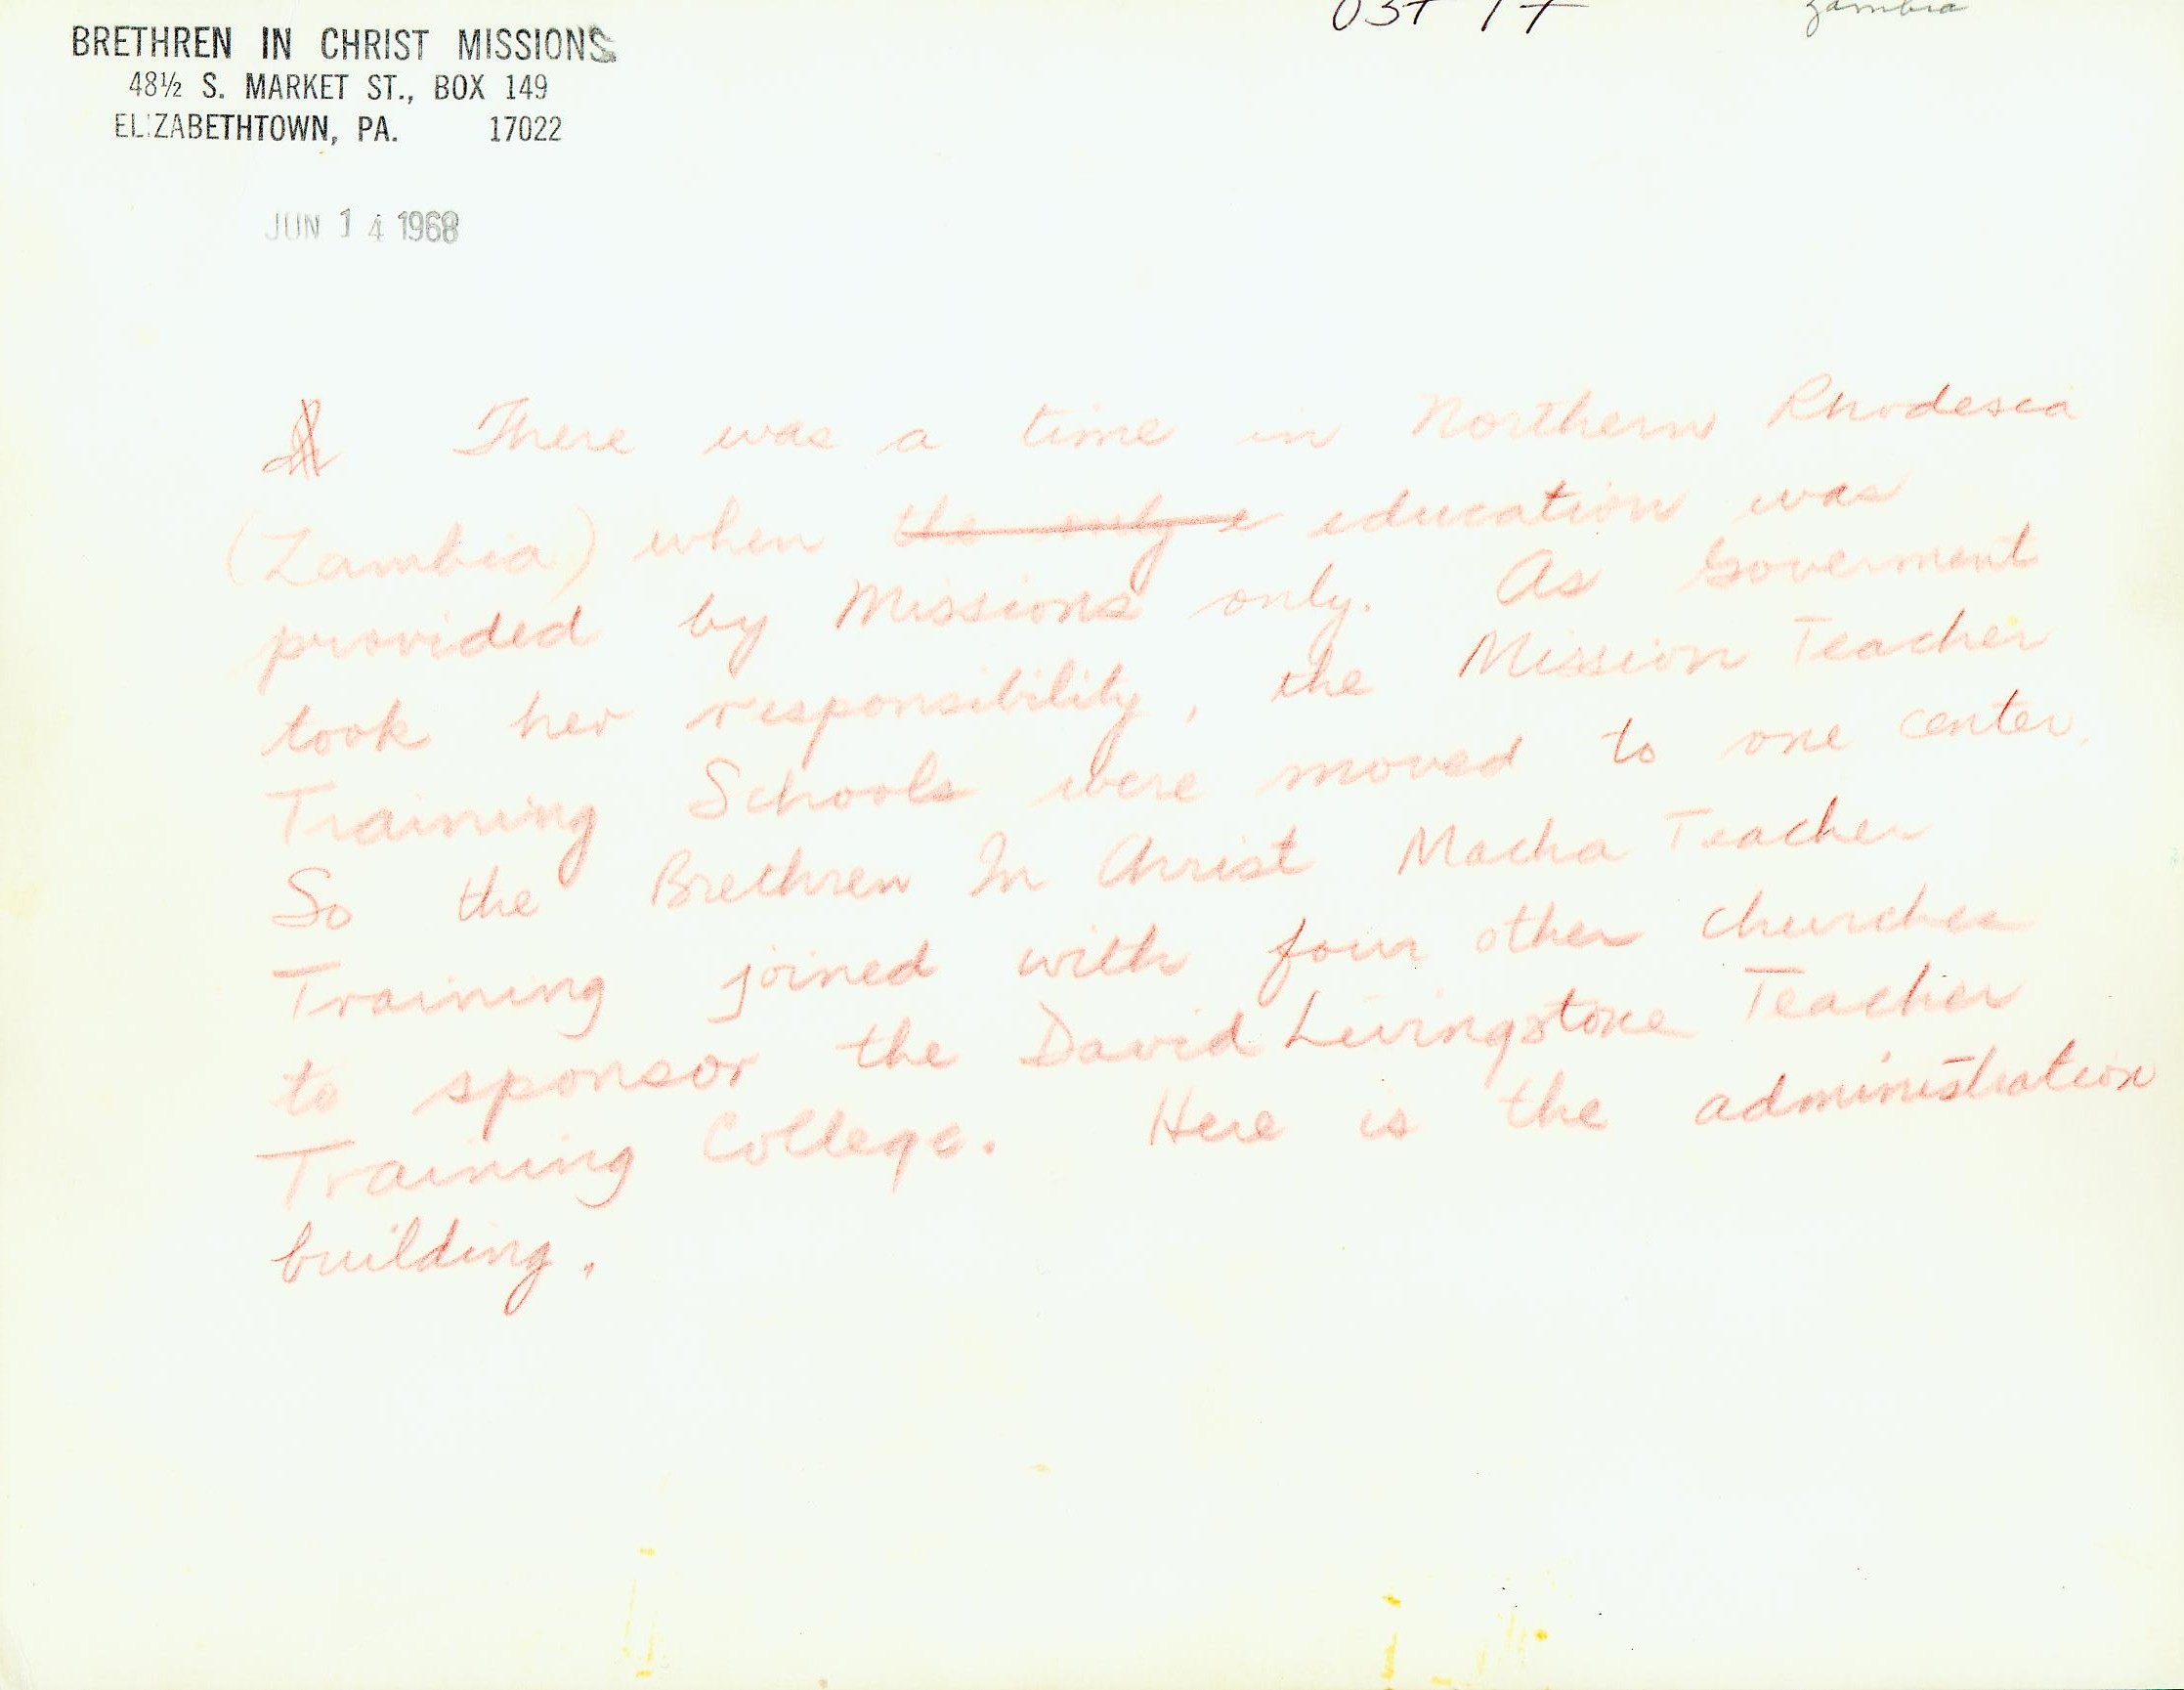 BRETHREN IN CHRIST MISSIONS
48½ S. MARKET ST., BOX 149
ELIZABETHTOWN, PA. 17022
Zambia
JUN 14 1968
There was a time in Northern Rhodesia
(Zambia) when the only e education was
provided by Missions only. As Goverment
took her responsibility, the Mission Teacher
Training Schools were moved to one center.
So the Brethren In Christ Macha Teacher
Training joined with four other churches
to sponsor the David Livingstone Teacher
Training College. Here is the administration
building.